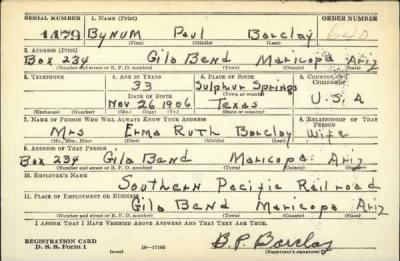 SERIAL NUMBER 1. NAME (Print) ORDER NUMBER
1479 Bynum Paul Barclay 640
(First) (Middle) (Last)
2. ADDRESS (Print)
Box 234 Gila Bend Maricopa Ariz
(Number and street or R. F. D. number) (Town) (County) (State)
3. TELEPHONE 4. AGE IN YEARS 5. PLACE OF BIRTH 6. COUNTRY OF CITIZENSHIP
33 Sulphur Springs
DATE OF BIRTH (Town or county)
Nov 26 1906 Texas U.S.A
(Exchange) (Number) (Mo.) (Day) (Yr.) (State or country)
7. NAME OF PERSON WHO WILL ALWAYS KNOW YOUR ADDRESS 8. RELATIONSHIP OF THAT PERSON
Mrs Erma Ruth Barclay Wife
(Mr., Mrs., Miss) (First) (Middle) (Last)
9. ADDRESS OF THAT PERSON
Box 234 Gila Bend Maricopa Ariz
(Number and street or R. F. D. number) (Town) (County) (State)
10. EMPLOYER'S NAME
Southern Pacific Railroad
11. PLACE OF EMPLOYMENT OR BUSINESS
Gila Bend Maricopa Ariz
(Number and street or R. F. D. number) (Town) (County) (State)
I AFFIRM THAT I HAVE VERIFIED ABOVE ANSWERS AND THAT THEY ARE TRUE.
REGISTRATION CARD
D. S. S. Form 1 (over) 16—17105 B.P. Barclay
(Registrant's signature)